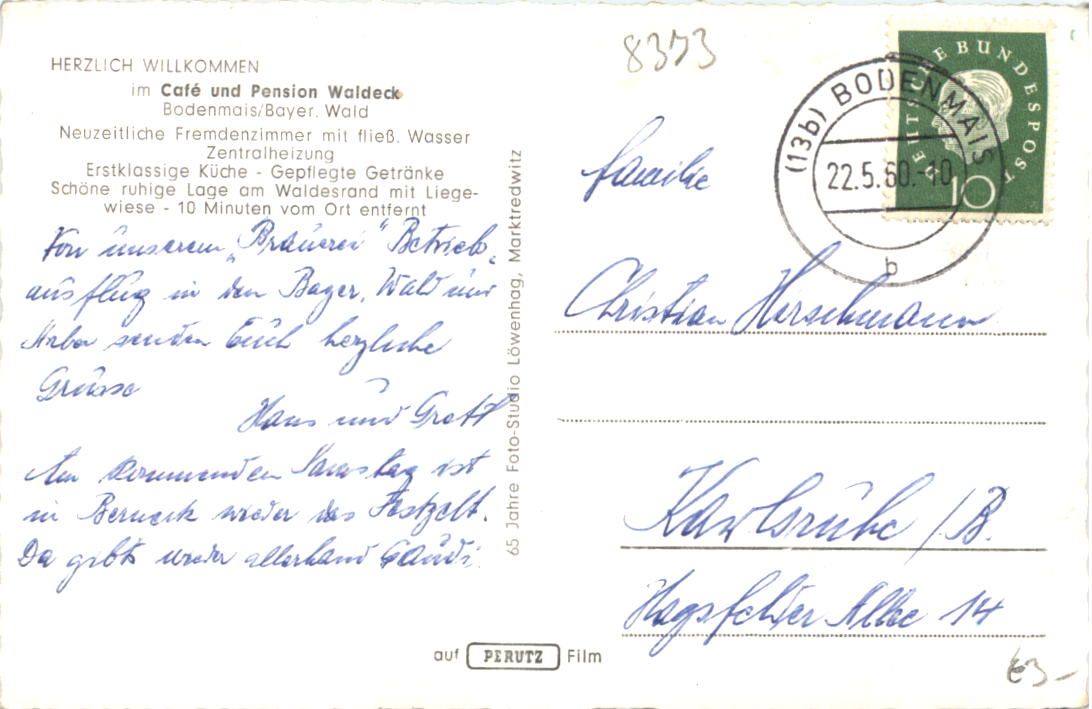 HERZLICH WILLKOMMEN
im Café und Pension Waldeck
Bodenmais/Bayer. Wald
Neuzeitliche Fremdenzimmer mit fließ. Wasser
Zentralheizung
Erstklassige Küche - Gepflegte Getränke
Schöne ruhige Lage am Waldesrand mit Liege-
wiese - 10 Minuten vom Ort entfernt
Von unserem „Brauerei" Betriebs„
ausflug in den Bayer. Wald und
Arber senden Euch herzliche
Grüsse
Hans und Gretl
Am kommenden Samstag ist
in Berneck wieder das Festzelt.
Da gibts wieder allerhand Gaudi.
65 Jahre Foto-Studio Löwenhag, Marktredwitz
auf PERUTZ Film
8373
DEUTSCHE BUNDESPOST
10
(13b) BODENMAIS
22.5.60.-10
b
Familie
Christian Herschmann
Karlsruhe /B.
Hagsfelder Allee 14
€3-